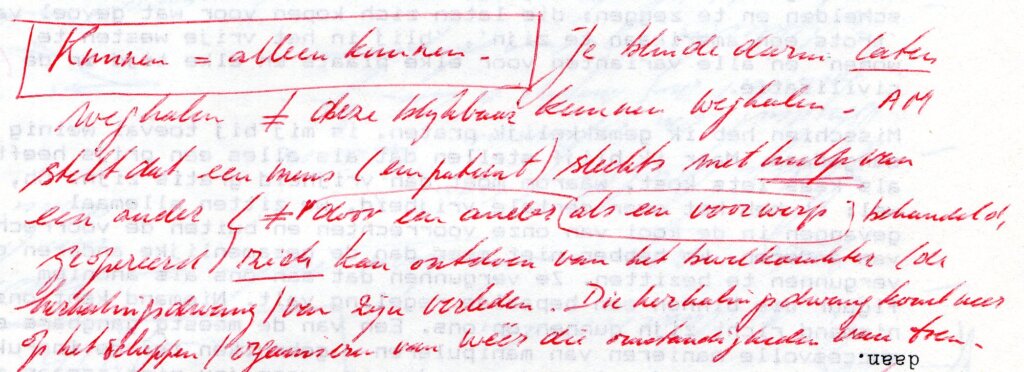 Kunnen = alleen kunnen - Je blinde darm laten
weghalen ≠ deze blijkbaar kunnen weghalen - AM
stelt dat een mens (een patient) slechts met hulp van
een ander (≠ "door een ander (als een voorwerp) behandeld,
geopereerd) zich kan ontdoen van het (de
herhalingsdwang) van zijn verleden. Die herhalingsdwang komt neer
op het scheppen / organiseren van weer die omstandigheden van
daan.